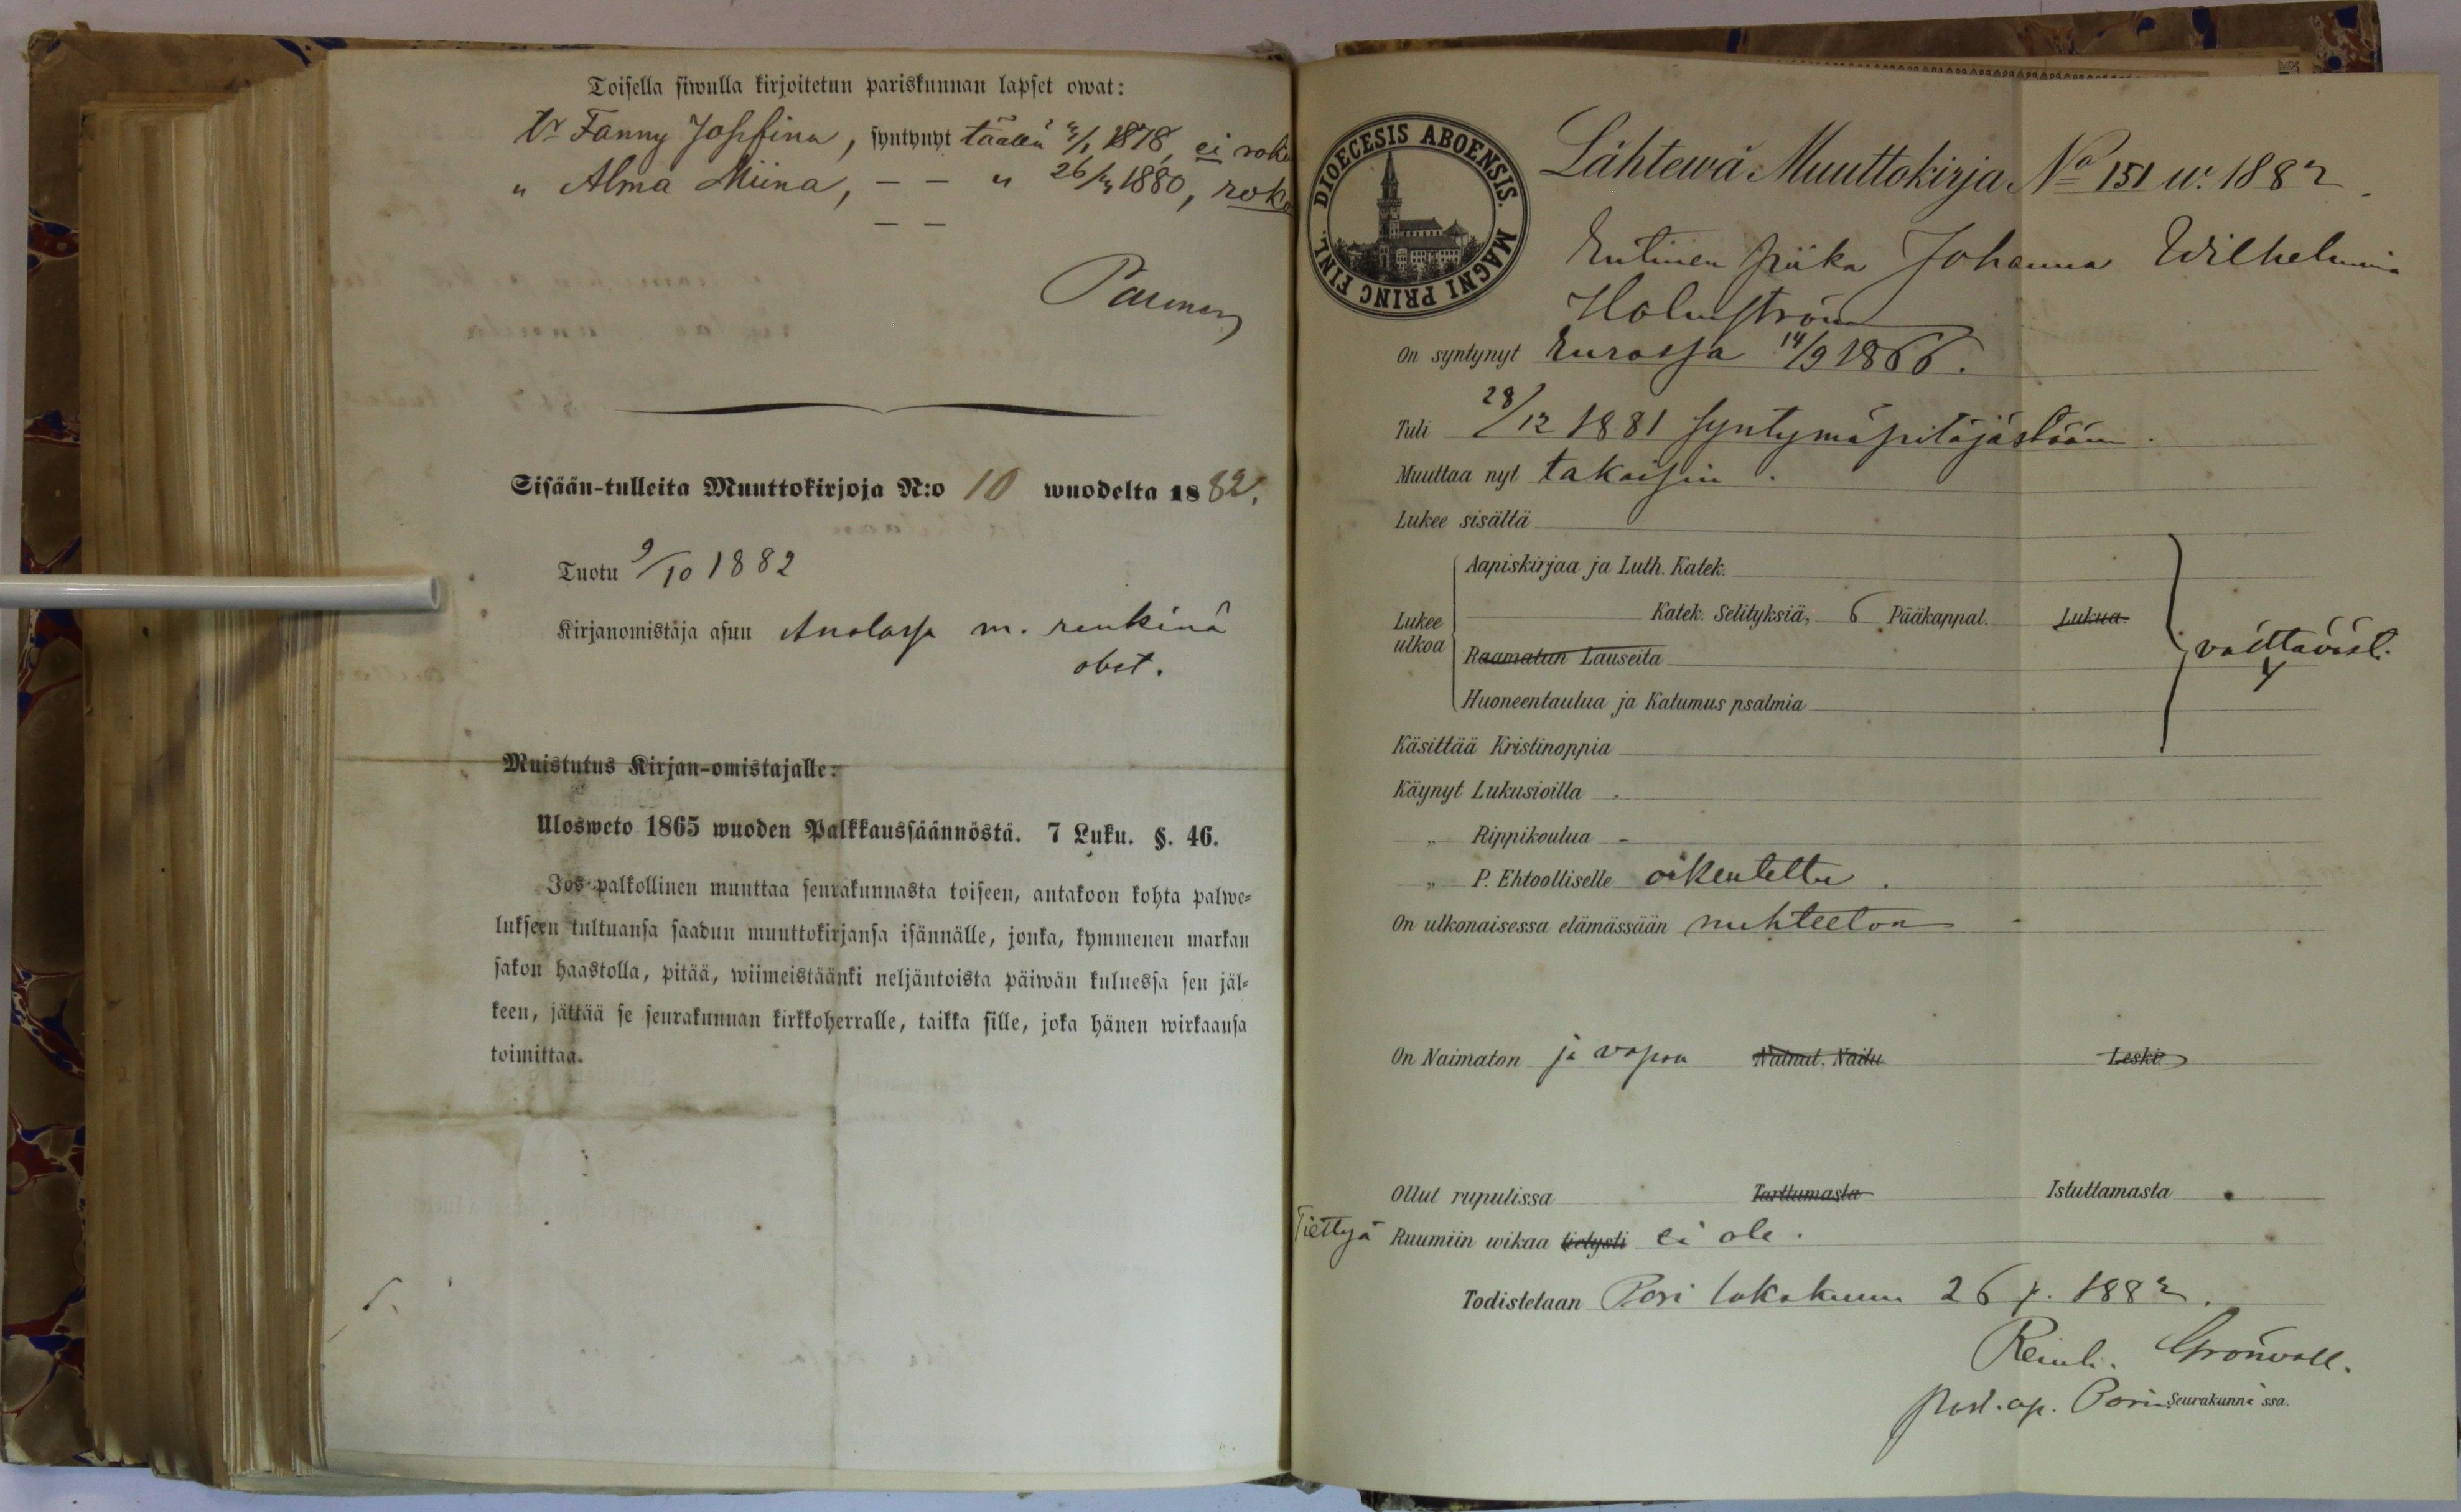 Toisella siwulla kirjoitetun pariskunnan lapset owat:
Tr Fanny Josefina, syntynyt täällä 1878, ei roko
" Alma Miina, — — " 26/ 1880, roko
— —
Sisään-tulleita Muuttokirjoja N:o 10 wuodelta 1882.
Tuotu 9/10 1882
Kirjanomistaja asuu Anolassa m. renkinä
obst.
Muistutus Kirjan-omistajalle:
Ulosweto 1865 wuoden Palkkaussäännöstä. 7 Luku. §. 46.
Jos palkollinen muuttaa seurakunnasta toiseen, antakoon kohta palwe-
lukseen tultuansa saadun muuttokirjansa isännälle, jonka, kymmenen markan
sakon haastolla, pitää, wiimeistäänki neljäntoista päiwän kuluessa sen jäl-
keen, jättää se seurakunnan kirkkoherralle, taikka sille, joka hänen wirkaansa
toimittaa.
DIOECESIS ABOENSIS. MAGNI PRINC FINL.
Lähtewä Muuttokirja No 151 w. 1882.
Entinen piika Johanna Wilhelmina
Holmström
On syntynyt Eurassa 14/9 1866.
Tuli 28/12 1881 syntymäpitäjästään.
Muuttaa nyt takaisin.
Lukee sisältä
Lukee ulkoa
Aapiskirjaa ja Luth. Katek.
Katek. Selityksiä, 6 Pääkappal. Lukua.
Raamatun Lauseita
Huoneentaulua ja Katumus psalmia
välttäväst.
Käsittää Kristinoppia
Käynyt Lukusioilla
„ Rippikoulua
„ P. Ehtoolliselle oikeutettu.
On ulkonaisessa elämässään nuhteeton
On Naimaton ja vapaa Nainut, Naitu Leski.
Ollut rupulissa Tarttumasta Istuttamasta
Tiettyä Ruumiin wikaa tietysti ei ole.
Todistetaan Pori lokakuun 26 p. 1882.
Reinh. Grönvall.
past. ap. Porin Seurakunnassa.